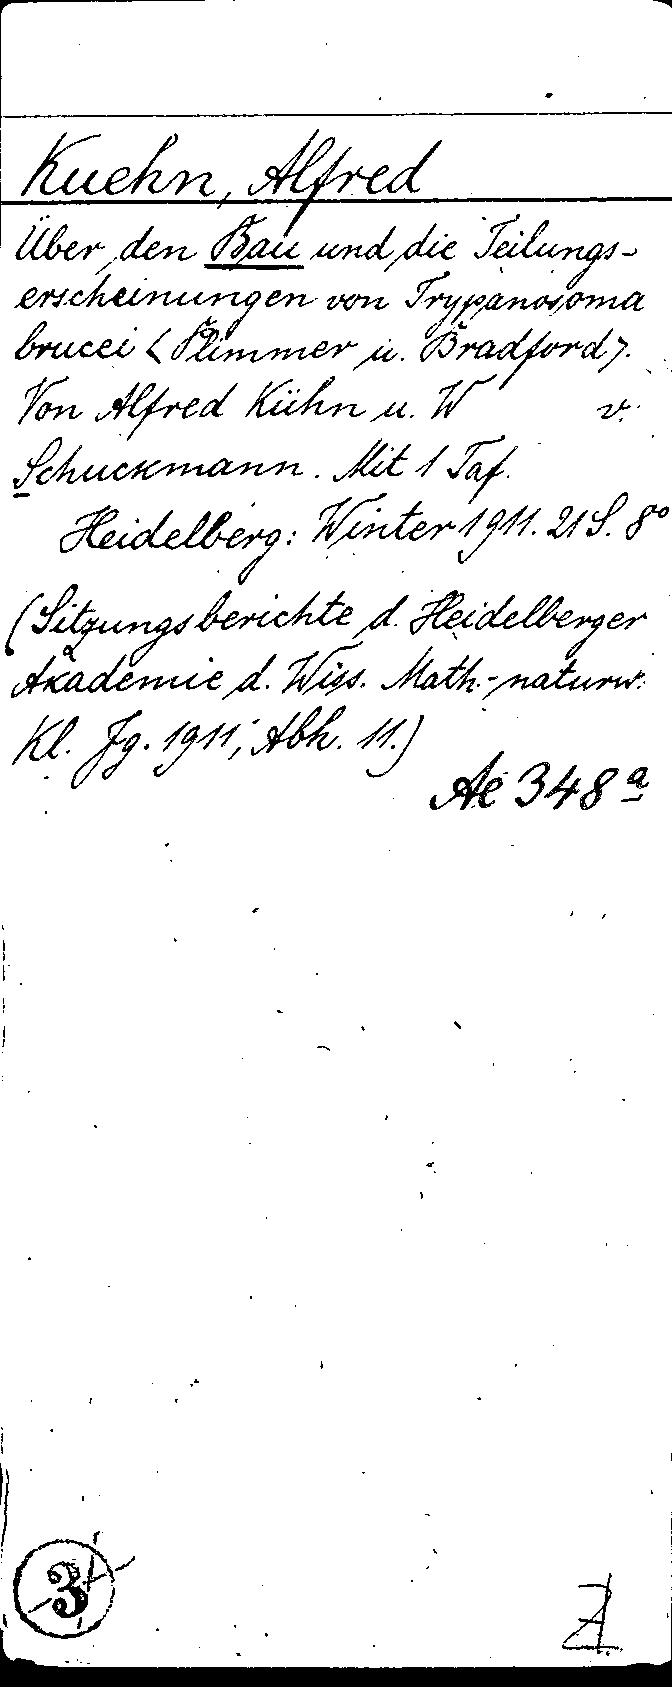 Kuehn, Alfred
Über den Bau und die Teilungs-
erscheinungen von Trypanosoma
brucei <Plimmer u. Bradford>.
Von Alfred Kühn u. W v.
Schuckmann. Mit 1 Taf.
Heidelberg: Winter 1911. 21 S. 8°
(Sitzungsberichte d. Heidelberger
Akademie d. Wiss. Math.-naturw.
Kl. Jg. 1911, Abh. 11.)
Ae 348 a
3